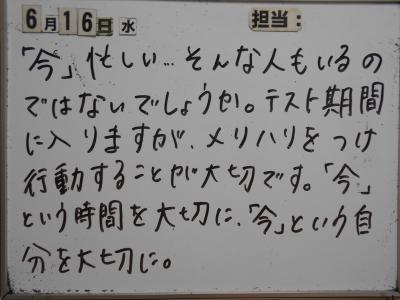 6月16日水 担当:
「今」忙しい…そんな人もいるの
ではないでしょうか。テスト期間
に入りますが、メリハリをつけ
行動することが大切です。「今」
という時間を大切に、「今」という自
分を大切に。